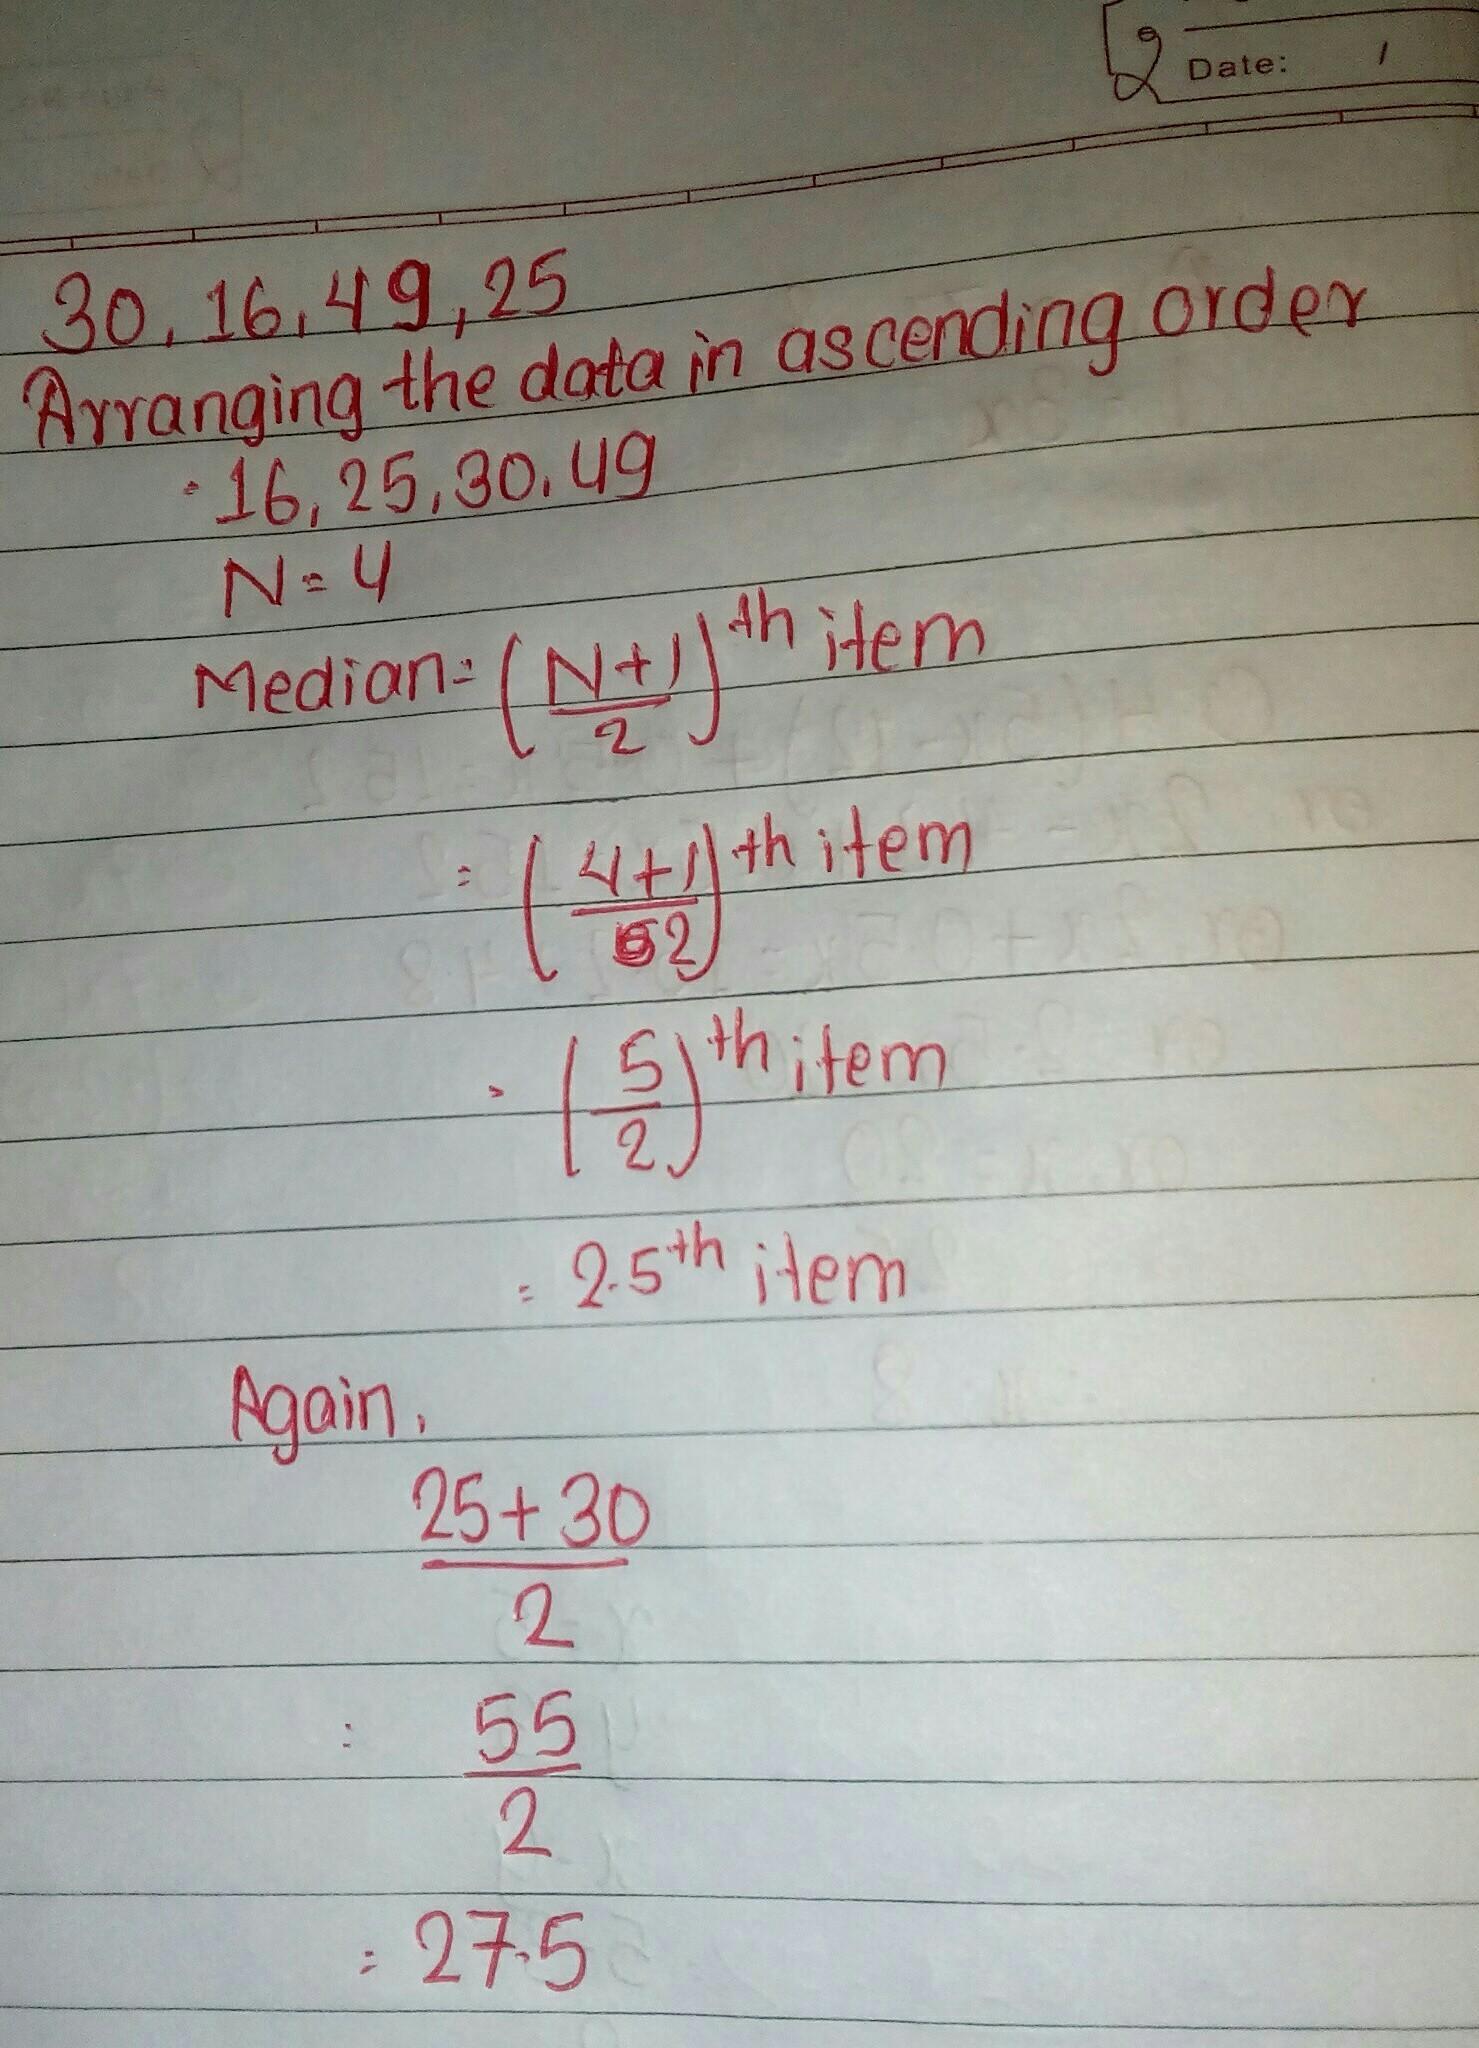 Date: /
30, 16, 49, 25
Arranging the data in ascending order
16, 25, 30, 49
N = 4
Median = (N+1/2)th item
= (4+1/2)th item
= (5/2)th item
= 2.5th item
Again,
25+30/2
= 55/2
= 27.5